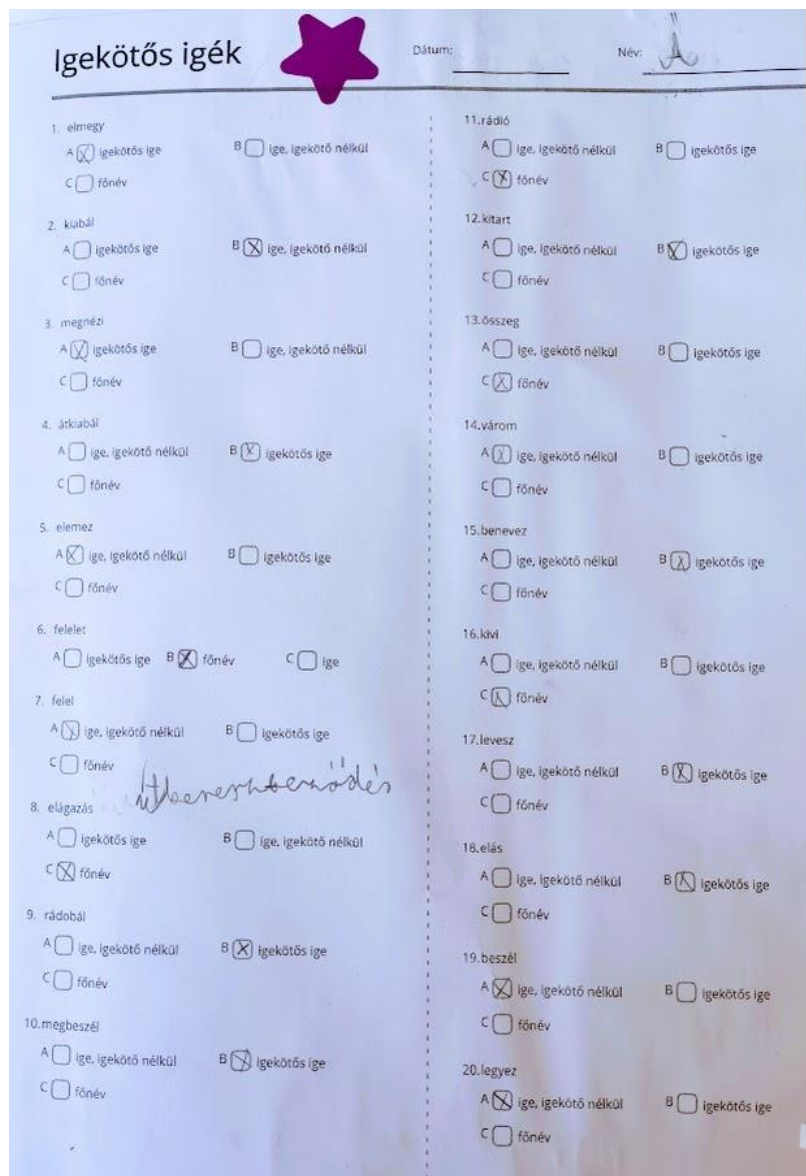 Igekötős igék
Dátum:
Név: Á
1. elmegy
A igekötős ige B ige, igekötő nélkül
C főnév
2. kiabál
A igekötős ige B ige, igekötő nélkül
C főnév
3. megnézi
A igekötős ige B ige, igekötő nélkül
C főnév
4. átkiabál
A ige, igekötő nélkül B igekötős ige
C főnév
5. elemez
A ige, igekötő nélkül B igekötős ige
C főnév
6. felelet
A igekötős ige B főnév C ige
7. felel
A ige, igekötő nélkül B igekötős ige
C főnév
útkereszteződés
8. elágazás
A igekötős ige B ige, igekötő nélkül
C főnév
9. rádobál
A ige, igekötő nélkül B igekötős ige
C főnév
10.megbeszél
A ige, igekötő nélkül B igekötős ige
C főnév
11.rádió
A ige, igekötő nélkül B igekötős ige
C főnév
12.kitart
A ige, igekötő nélkül B igekötős ige
C főnév
13.összeg
A ige, igekötő nélkül B igekötős ige
C főnév
14.várom
A ige, igekötő nélkül B igekötős ige
C főnév
15.benevez
A ige, igekötő nélkül B igekötős ige
C főnév
16.kivi
A ige, igekötő nélkül B igekötős ige
C főnév
17.levesz
A ige, igekötő nélkül B igekötős ige
C főnév
18.elás
A ige, igekötő nélkül B igekötős ige
C főnév
19.beszél
A ige, igekötő nélkül B igekötős ige
C főnév
20.legyez
A ige, igekötő nélkül B igekötős ige
C főnév